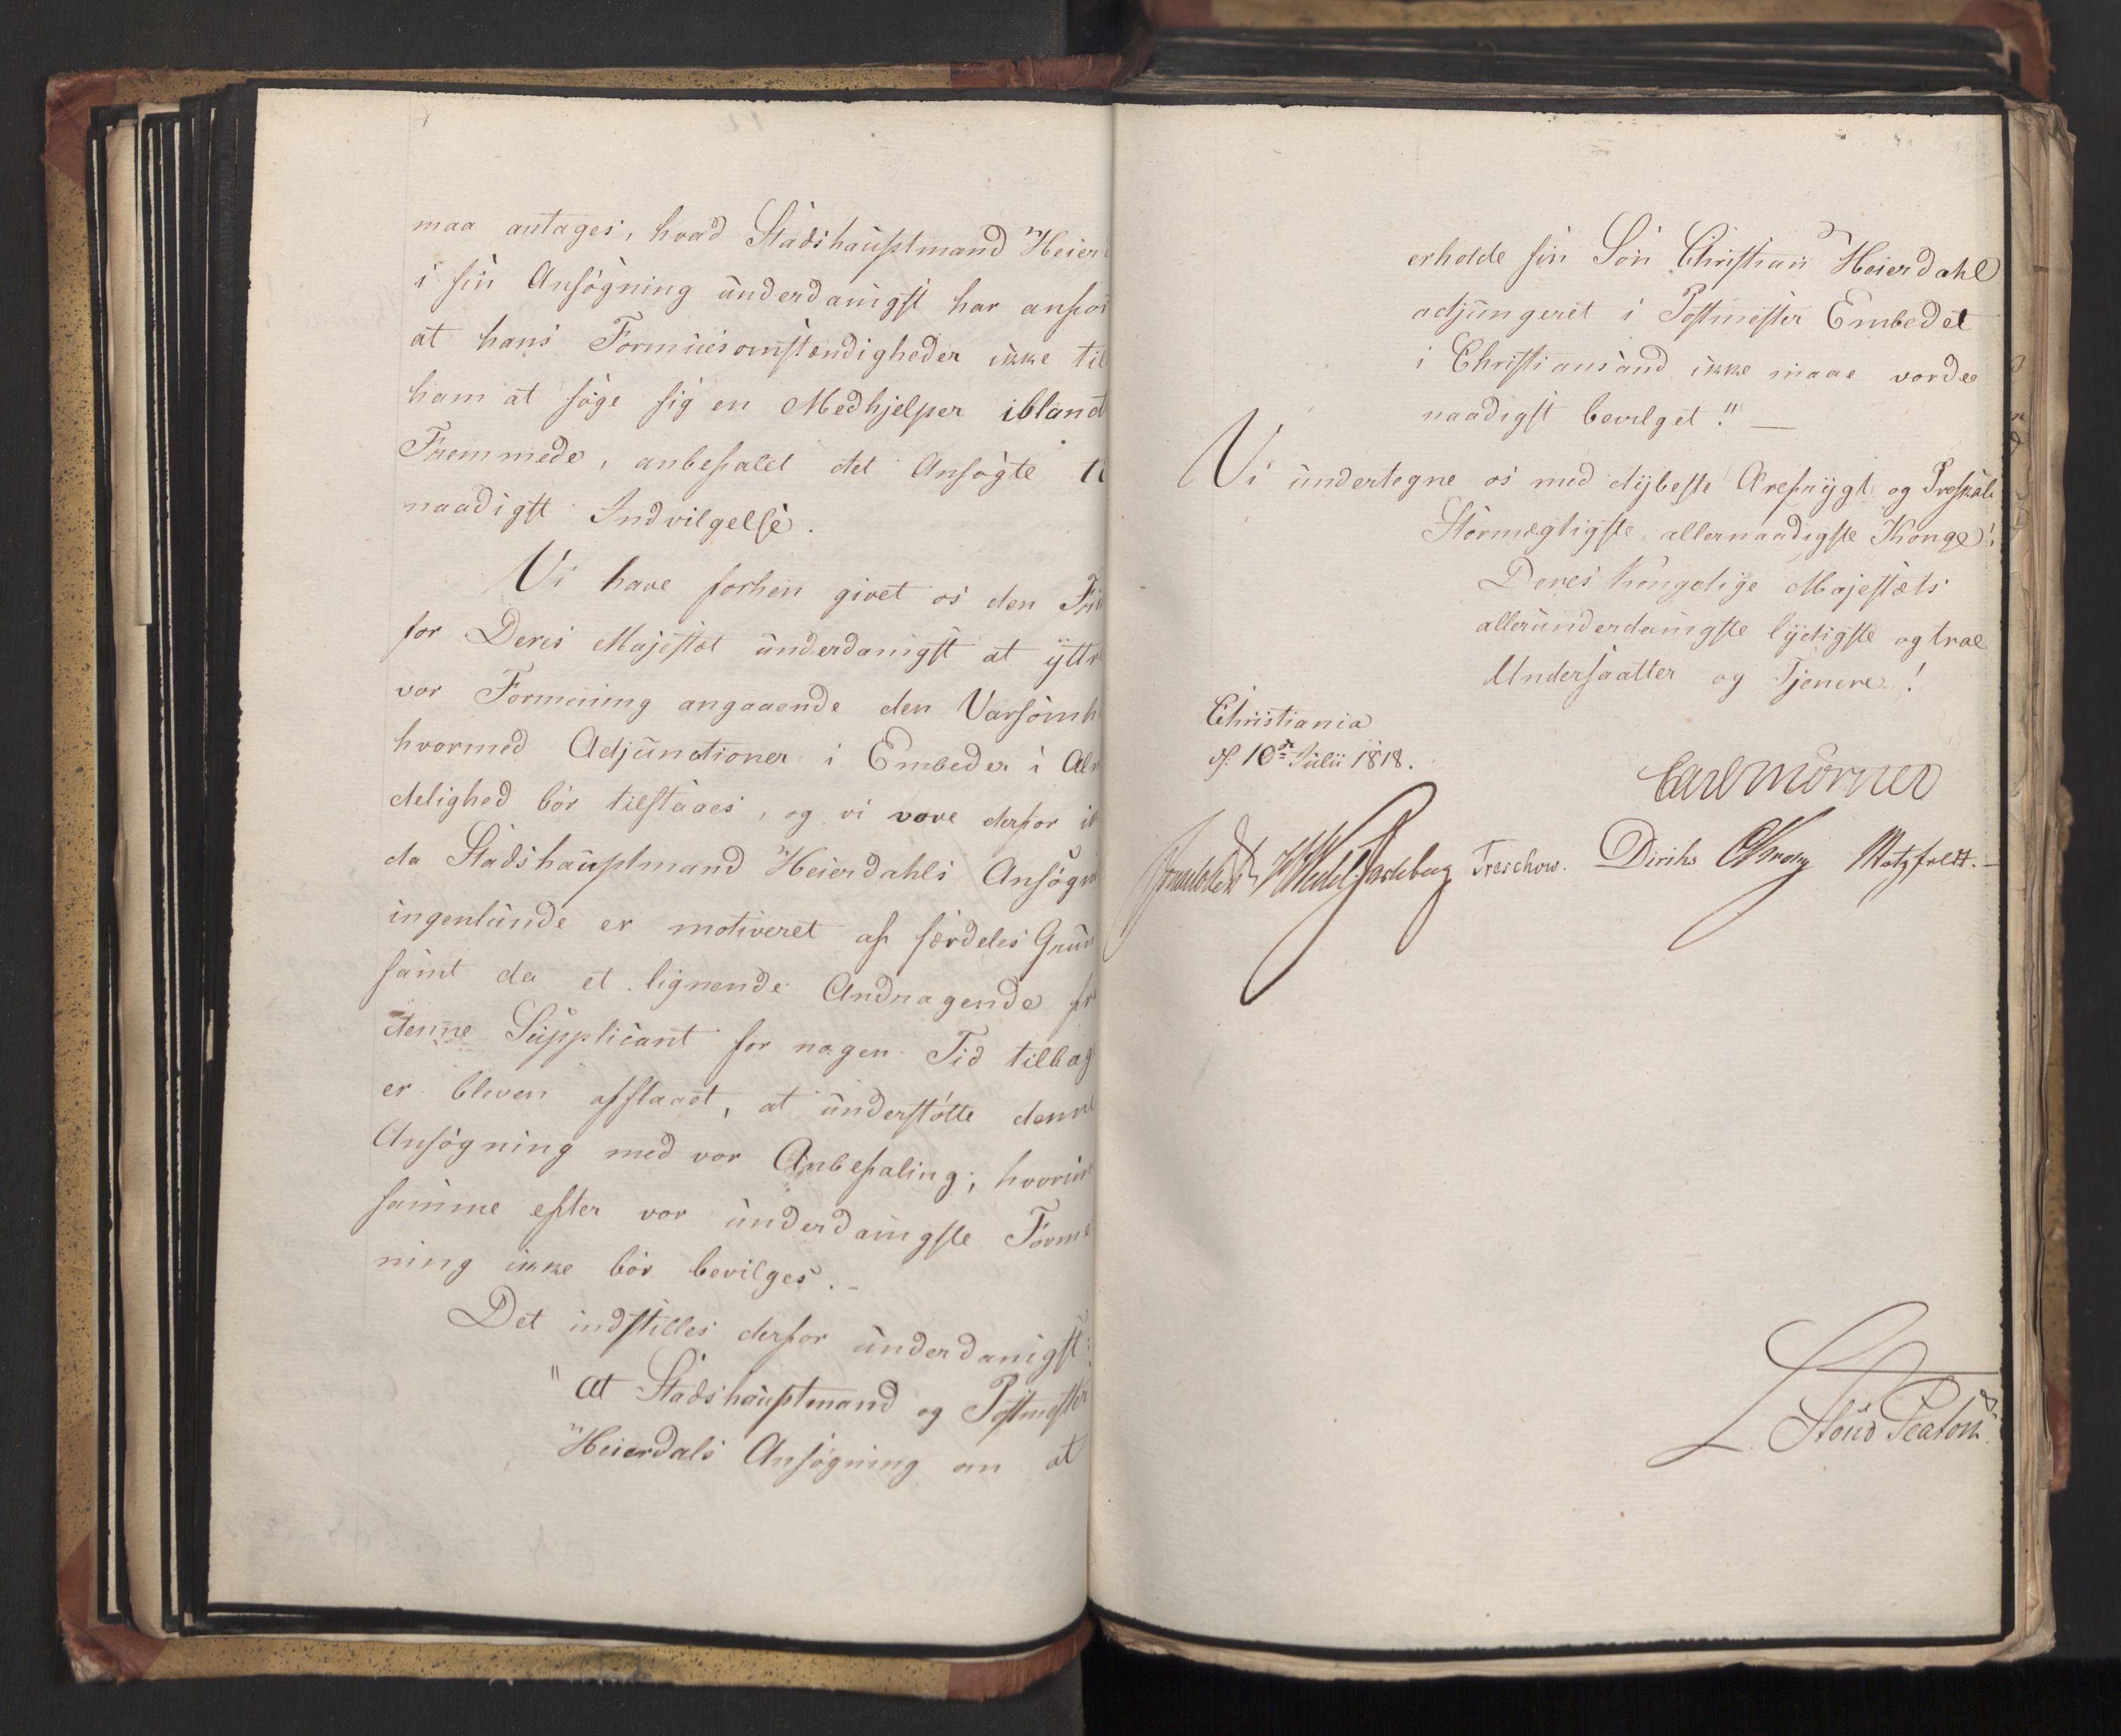 maa antages, hvad Stadshauptmand Heier
i sin Ansøgning underdanigst har anfør
at hans Formuesomstændigheder ikke til
ham at søge sig en Medhjelper iblandt
Fremmede, anbefalet det Ansøgte ti
naadigst Indvilgelse.
Vi have forhen givet os den Fri
for Deres Majestæt underdanigst at yttr
vor Formening angaaende den Varsomh
hvormed Adjunctioner i Embeder i Alm
delighed bør tilstaaes, og vi vove derfor ik
da Stadshauptmand Heierdahls Ansøgni
ingenlunde er motiveret af særdeles Grun
samt da et lignende Andragende fr
denne Supplicant for nogen Tid tilbag
er bleven afslaaet, at understøtte denne
Ansøgning med vor Anbefaling; hvorim
samme efter vor underdanigste Forme
ning ikke bør bevilges.-
Det indstilles derfor underdanigst:
"at Stadshauptmand og Postmester
Heierdals Ansøgning om at
erholde sin Søn Christian Heierdahl
adjungeret i Postmester Embedet
i Christiansand ikke maae vorde
naadigst bevilget." —
Vi undertegne os med dybeste Ærefrygt og Troskab
Stormægtigste allernaadigste Konge!
Deres Kongelige Majestæts
allerunderdanigste lydigste og troe
Undersaatter og Tjenere!
Christiania
d. 10de Julii 1818.
Carl Mörner
Sommerhielm HWedelJarlsberg Treschow. Diriks CKrog Motzfeldt.-
L. Stoud Platou